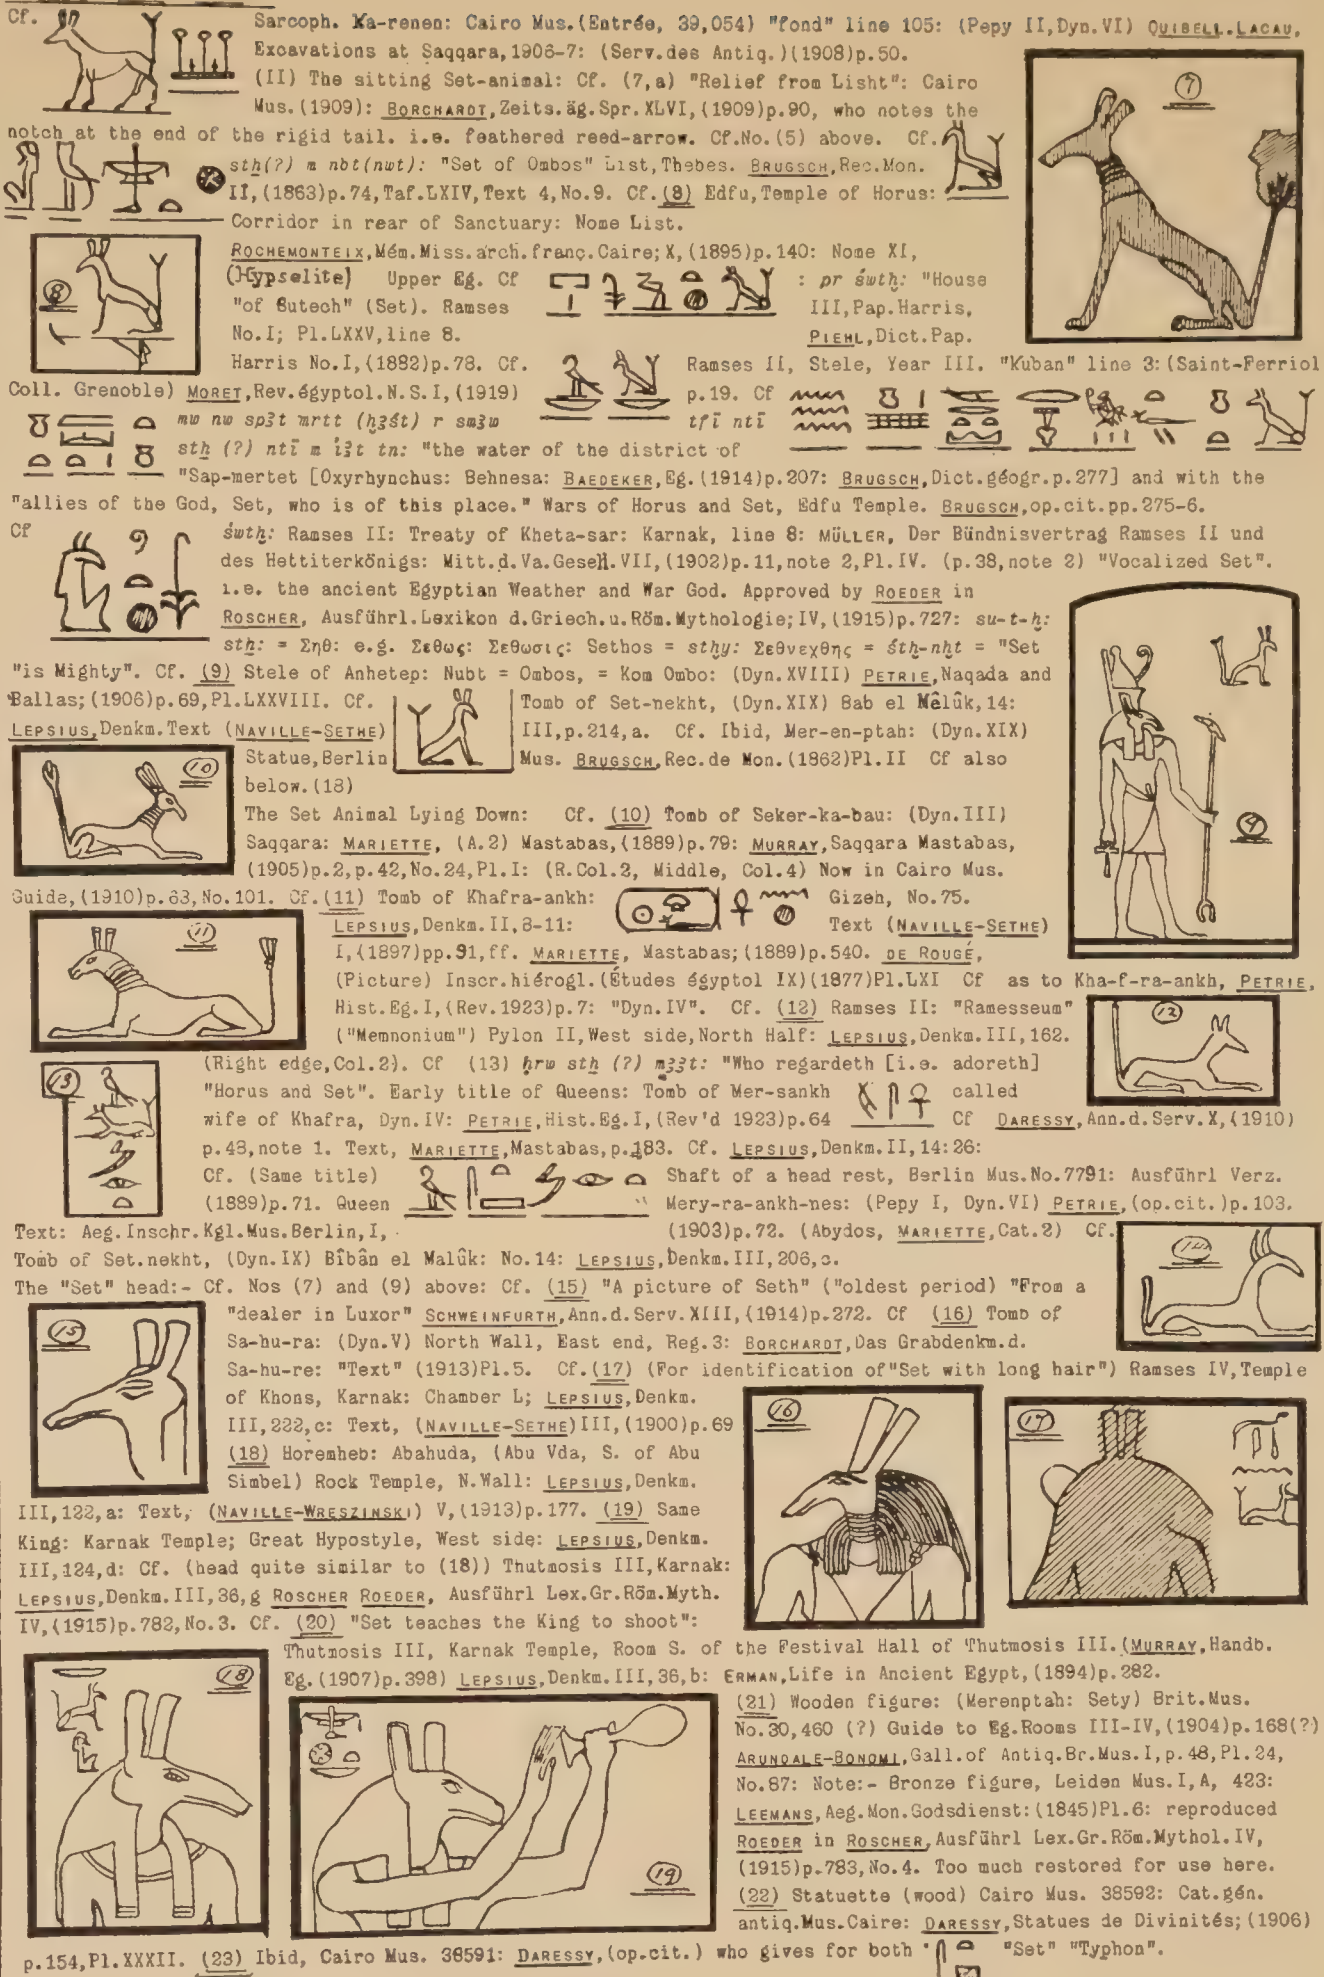 Cf. Sarcoph. Ka-renen: Cairo Mus.(Entrée, 39,054) "fond" line 105: (Pepy II,Dyn.VI) QUIBELL.LACAU,
Excavations at Saqqara,1906-7: (Serv.des Antiq.)(1908)p.50.
(II) The sitting Set-animal: Cf. (7,a) "Relief from Lisht": Cairo
Mus.(1909): BORCHARDT,Zeits.äg.Spr.XLVI,(1909)p.90, who notes the
notch at the end of the rigid tail. i.e. feathered reed-arrow. Cf.No.(5) above. Cf.
7
stẖ(?) m nbt(nwt): "Set of Ombos" List,Thebes. BRUGSCH,Rec.Mon.
II,(1863)p.74,Taf.LXIV,Text 4,No.9. Cf.(8) Edfu,Temple of Horus:
Corridor in rear of Sanctuary: Nome List.
ROCHEMONTEIX,Mém.Miss.arch.franç.Caire;X,(1895)p.140: Nome XI,
8
(Hypselite) Upper Eg. Cf : pr śwtẖ: "House
"of Sutech" (Set). Ramses III,Pap.Harris,
No.I; Pl.LXXV,line 8. PIEHL,Dict.Pap.
Harris No.I,(1882)p.78. Cf. Ramses II, Stele, Year III. "Kuban" line 3:(Saint-Ferriol
Coll. Grenoble) MORET,Rev.égyptol.N.S.I,(1919) p.19. Cf
mw nw spꜣt mrtt (ḫꜣśt) r smꜣw tfī ntī
stẖ (?) ntī m iꜣt tn: "the water of the district of
"Sap-mertet [Oxyrhynchus: Behnesa: BAEDEKER,Eg.(1914)p.207: BRUGSCH,Dict.géogr.p.277] and with the
"allies of the God, Set, who is of this place." Wars of Horus and Set, Edfu Temple. BRUGSCH,op.cit.pp.275-6.
Cf śwtẖ: Ramses II: Treaty of Kheta-sar: Karnak, line 8: MÜLLER, Der Bündnisvertrag Ramses II und
des Hettiterkönigs: Mitt.d.Va.Gesell.VII,(1902)p.11,note 2,Pl.IV. (p.38,note 2) "Vocalized Set".
i.e. the ancient Egyptian Weather and War God. Approved by ROEDER in
ROSCHER, Ausführl.Lexikon d.Griech.u.Röm.Mythologie;IV,(1915)p.727: su-t-ḫ:
stẖ: = Σηθ: e.g. Σεθως: Σεθωσις: Sethos = stẖy: Σεθνεχθης = śtẖ-nḫt = "Set
"is Mighty". Cf. (9) Stele of Anhetep: Nubt = Ombos, = Kom Ombo: (Dyn.XVIII) PETRIE,Naqada and
Ballas;(1906)p.69,Pl.LXXVIII. Cf. Tomb of Set-nekht, (Dyn.XIX) Bab el Mêlûk,14:
LEPSIUS,Denkm.Text (NAVILLE-SETHE) III,p.214,a. Cf. Ibid, Mer-en-ptah: (Dyn.XIX)
9
10
Statue,Berlin Mus. BRUGSCH,Rec.de Mon.(1862)Pl.II Cf also
below.(18)
The Set Animal Lying Down: Cf. (10) Tomb of Seker-ka-bau: (Dyn.III)
Saqqara: MARIETTE, (A.2) Mastabas,(1889)p.79: MURRAY,Saqqara Mastabas,
(1905)p.2,p.42,No.24,Pl.I: (R.Col.2, Middle, Col.4) Now in Cairo Mus.
Guide,(1910)p.63,No.101. Cf.(11) Tomb of Khafra-ankh: Gizeh, No.75.
11
LEPSIUS,Denkm.II,8-11: Text (NAVILLE-SETHE)
I,(1897)pp.91,ff. MARIETTE, Mastabas;(1889)p.540. DE ROUGÉ,
(Picture) Inscr.hiérogl.(Études égyptol IX)(1877)Pl.LXI Cf as to Kha-f-ra-ankh, PETRIE,
Hist.Eg.I,(Rev.1923)p.7: "Dyn.IV". Cf. (12) Ramses II: "Ramesseum"
12
("Memnonium") Pylon II,West side,North Half: LEPSIUS,Denkm.III,162.
(Right edge,Col.2). Cf (13) ḥrw stẖ (?) mꜣꜣt: "Who regardeth [i.e. adoreth]
13
"Horus and Set". Early title of Queens: Tomb of Mer-sankh called
wife of Khafra, Dyn.IV: PETRIE,Hist.Eg.I,(Rev'd 1923)p.64 Cf DARESSY,Ann.d.Serv.X,(1910)
p.48,note 1. Text, MARIETTE,Mastabas,p.183. Cf. LEPSIUS,Denkm.II,14:26:
Cf. (Same title) Shaft of a head rest, Berlin Mus.No.7791: Ausführl Verz.
(1889)p.71. Queen Mery-ra-ankh-nes: (Pepy I, Dyn.VI) PETRIE,(op.cit.)p.103.
Text: Aeg.Inschr.Kgl.Mus.Berlin,I, (1903)p.72. (Abydos, MARIETTE,Cat.2) Cf.
14
Tomb of Set.nekht, (Dyn.IX) Bîbân el Malûk: No.14: LEPSIUS,Denkm.III,206,c.
The "Set" head:- Cf. Nos (7) and (9) above: Cf. (15) "A picture of Seth" ("oldest period) "From a
15
"dealer in Luxor" SCHWEINFURTH,Ann.d.Serv.XIII,(1914)p.272. Cf (16) Tomb of
Sa-hu-ra: (Dyn.V) North Wall, East end, Reg.3: BORCHARDT,Das Grabdenkm.d.
Sa-hu-re: "Text" (1913)Pl.5. Cf.(17) (For identification of"Set with long hair") Ramses IV,Temple
of Khons, Karnak: Chamber L; LEPSIUS,Denkm.
16
17
III,222,c: Text, (NAVILLE-SETHE)III,(1900)p.69
(18) Horemheb: Abahuda, (Abu Vda, S. of Abu
Simbel) Rock Temple, N.Wall: LEPSIUS,Denkm.
III,122,a: Text, (NAVILLE-WRESZINSKI) V,(1913)p.177. (19) Same
King: Karnak Temple; Great Hypostyle, West side: LEPSIUS,Denkm.
III,124,d: Cf. (head quite similar to (18)) Thutmosis III,Karnak:
LEPSIUS,Denkm.III,36,g ROSCHER ROEDER, Ausführl Lex.Gr.Röm.Myth.
IV,(1915)p.782,No.3. Cf. (20) "Set teaches the King to shoot":
Thutmosis III, Karnak Temple, Room S. of the Festival Hall of Thutmosis III.(MURRAY,Handb.
Eg.(1907)p.398) LEPSIUS,Denkm.III,36,b: ERMAN,Life in Ancient Egypt,(1894)p.282.
18
19
(21) Wooden figure: (Merenptah: Sety) Brit.Mus.
No.30,460 (?) Guide to Eg.Rooms III-IV,(1904)p.168(?)
ARUNDALE-BONOMI,Gall.of Antiq.Br.Mus.I,p.48,Pl.24,
No.87: Note:- Bronze figure, Leiden Mus.I,A, 423:
LEEMANS,Aeg.Mon.Godsdienst:(1845)Pl.6: reproduced
ROEDER in ROSCHER,Ausführl Lex.Gr.Röm.Mythol.IV,
(1915)p.783,No.4. Too much restored for use here.
(22) Statuette (wood) Cairo Mus. 38592: Cat.gén.
antiq.Mus.Caire: DARESSY,Statues de Divinités;(1906)
p.154,Pl.XXXII. (23) Ibid, Cairo Mus. 38591: DARESSY,(op.cit.) who gives for both "Set" "Typhon".